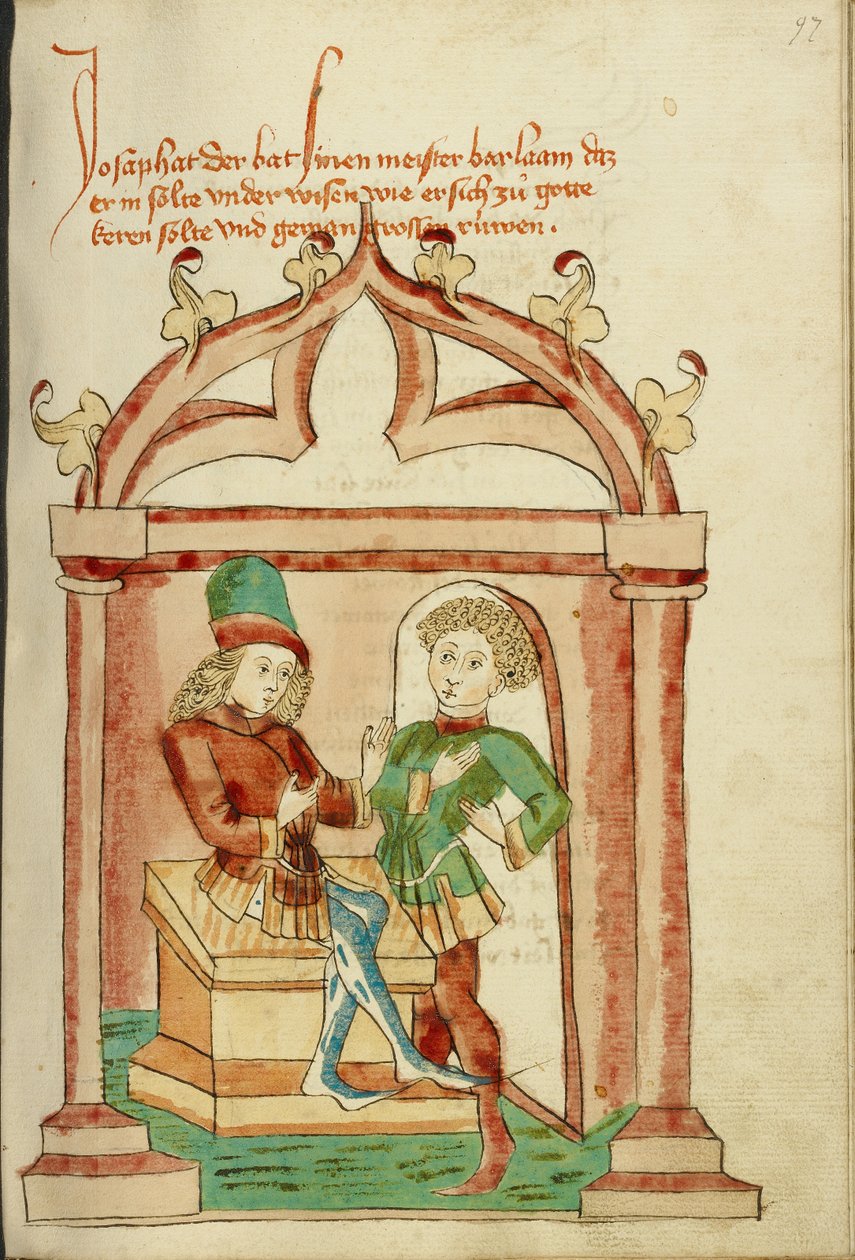 97
Josaphat der bat sinen meister barlaam daz
er in sölte vnder wisen wie er sich zů gotte
keren sölte vnd gewan grossen rüwen .